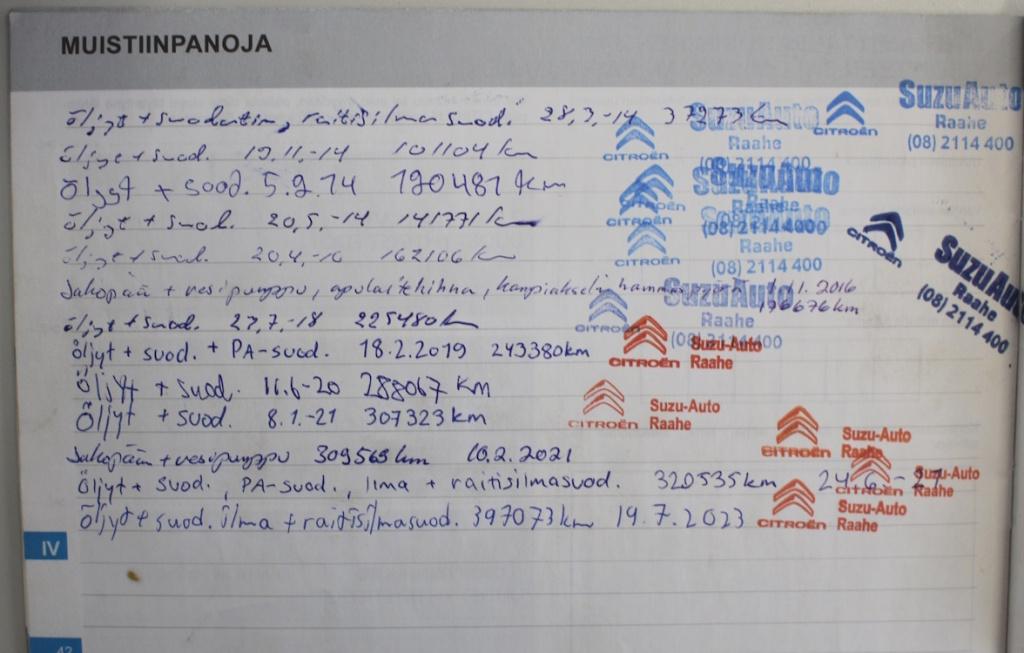 MUISTIINPANOJA
öljyt + suodatin, raitisilma suod. 28.3.-14 37973 km
öljyt + suod. 19.11.-14 101104 km
Öljyt + suod. 5.9.14 120481 km
öljyt + suod. 20.5.-14 141771 km
öljyt + suod. 20.4.-16 162106 km
Jakopään + vesipumppu, apulaitehihna, kampiakselin 1.11.2016
196676 km
öljyt + suod. 27.7.-18 225480 km
öljyt + suod. + PA-suod. 18.2.2019 243380km
Öljyt + suod. 11.6-20 288067 KM
Öljyt + suod. 8.1.-21 307323 km
Jakopään + vesipumppu 309569 km 10.2.2021
Öljyt + suod., PA-suod., ilma + raitisilmasuod. 320535km 24.6.-
Öljyt + suod. ilma + raitisilmasuod. 397073km 19.7.2023
CITROËN
SuzuAuto
Raahe
(08) 2114 400
CITROËN
SuzuAuto
Raahe
(08) 2114 400
SuzuAuto
(08) 2114 400
CITROËN
CITROËN
Raahe
(08) 2114 400
CITROËN
SuzuAuto
Raahe
(08) 2114 400
SuzuAuto
Raahe
CITROËN
Suzu-Auto
Raahe
CITROËN
Suzu-Auto
Raahe
CITROËN
Suzu-Auto
Raahe
CITROËN
Suzu-Auto
Raahe
CITROËN
Suzu-Auto
Raahe
IV
42